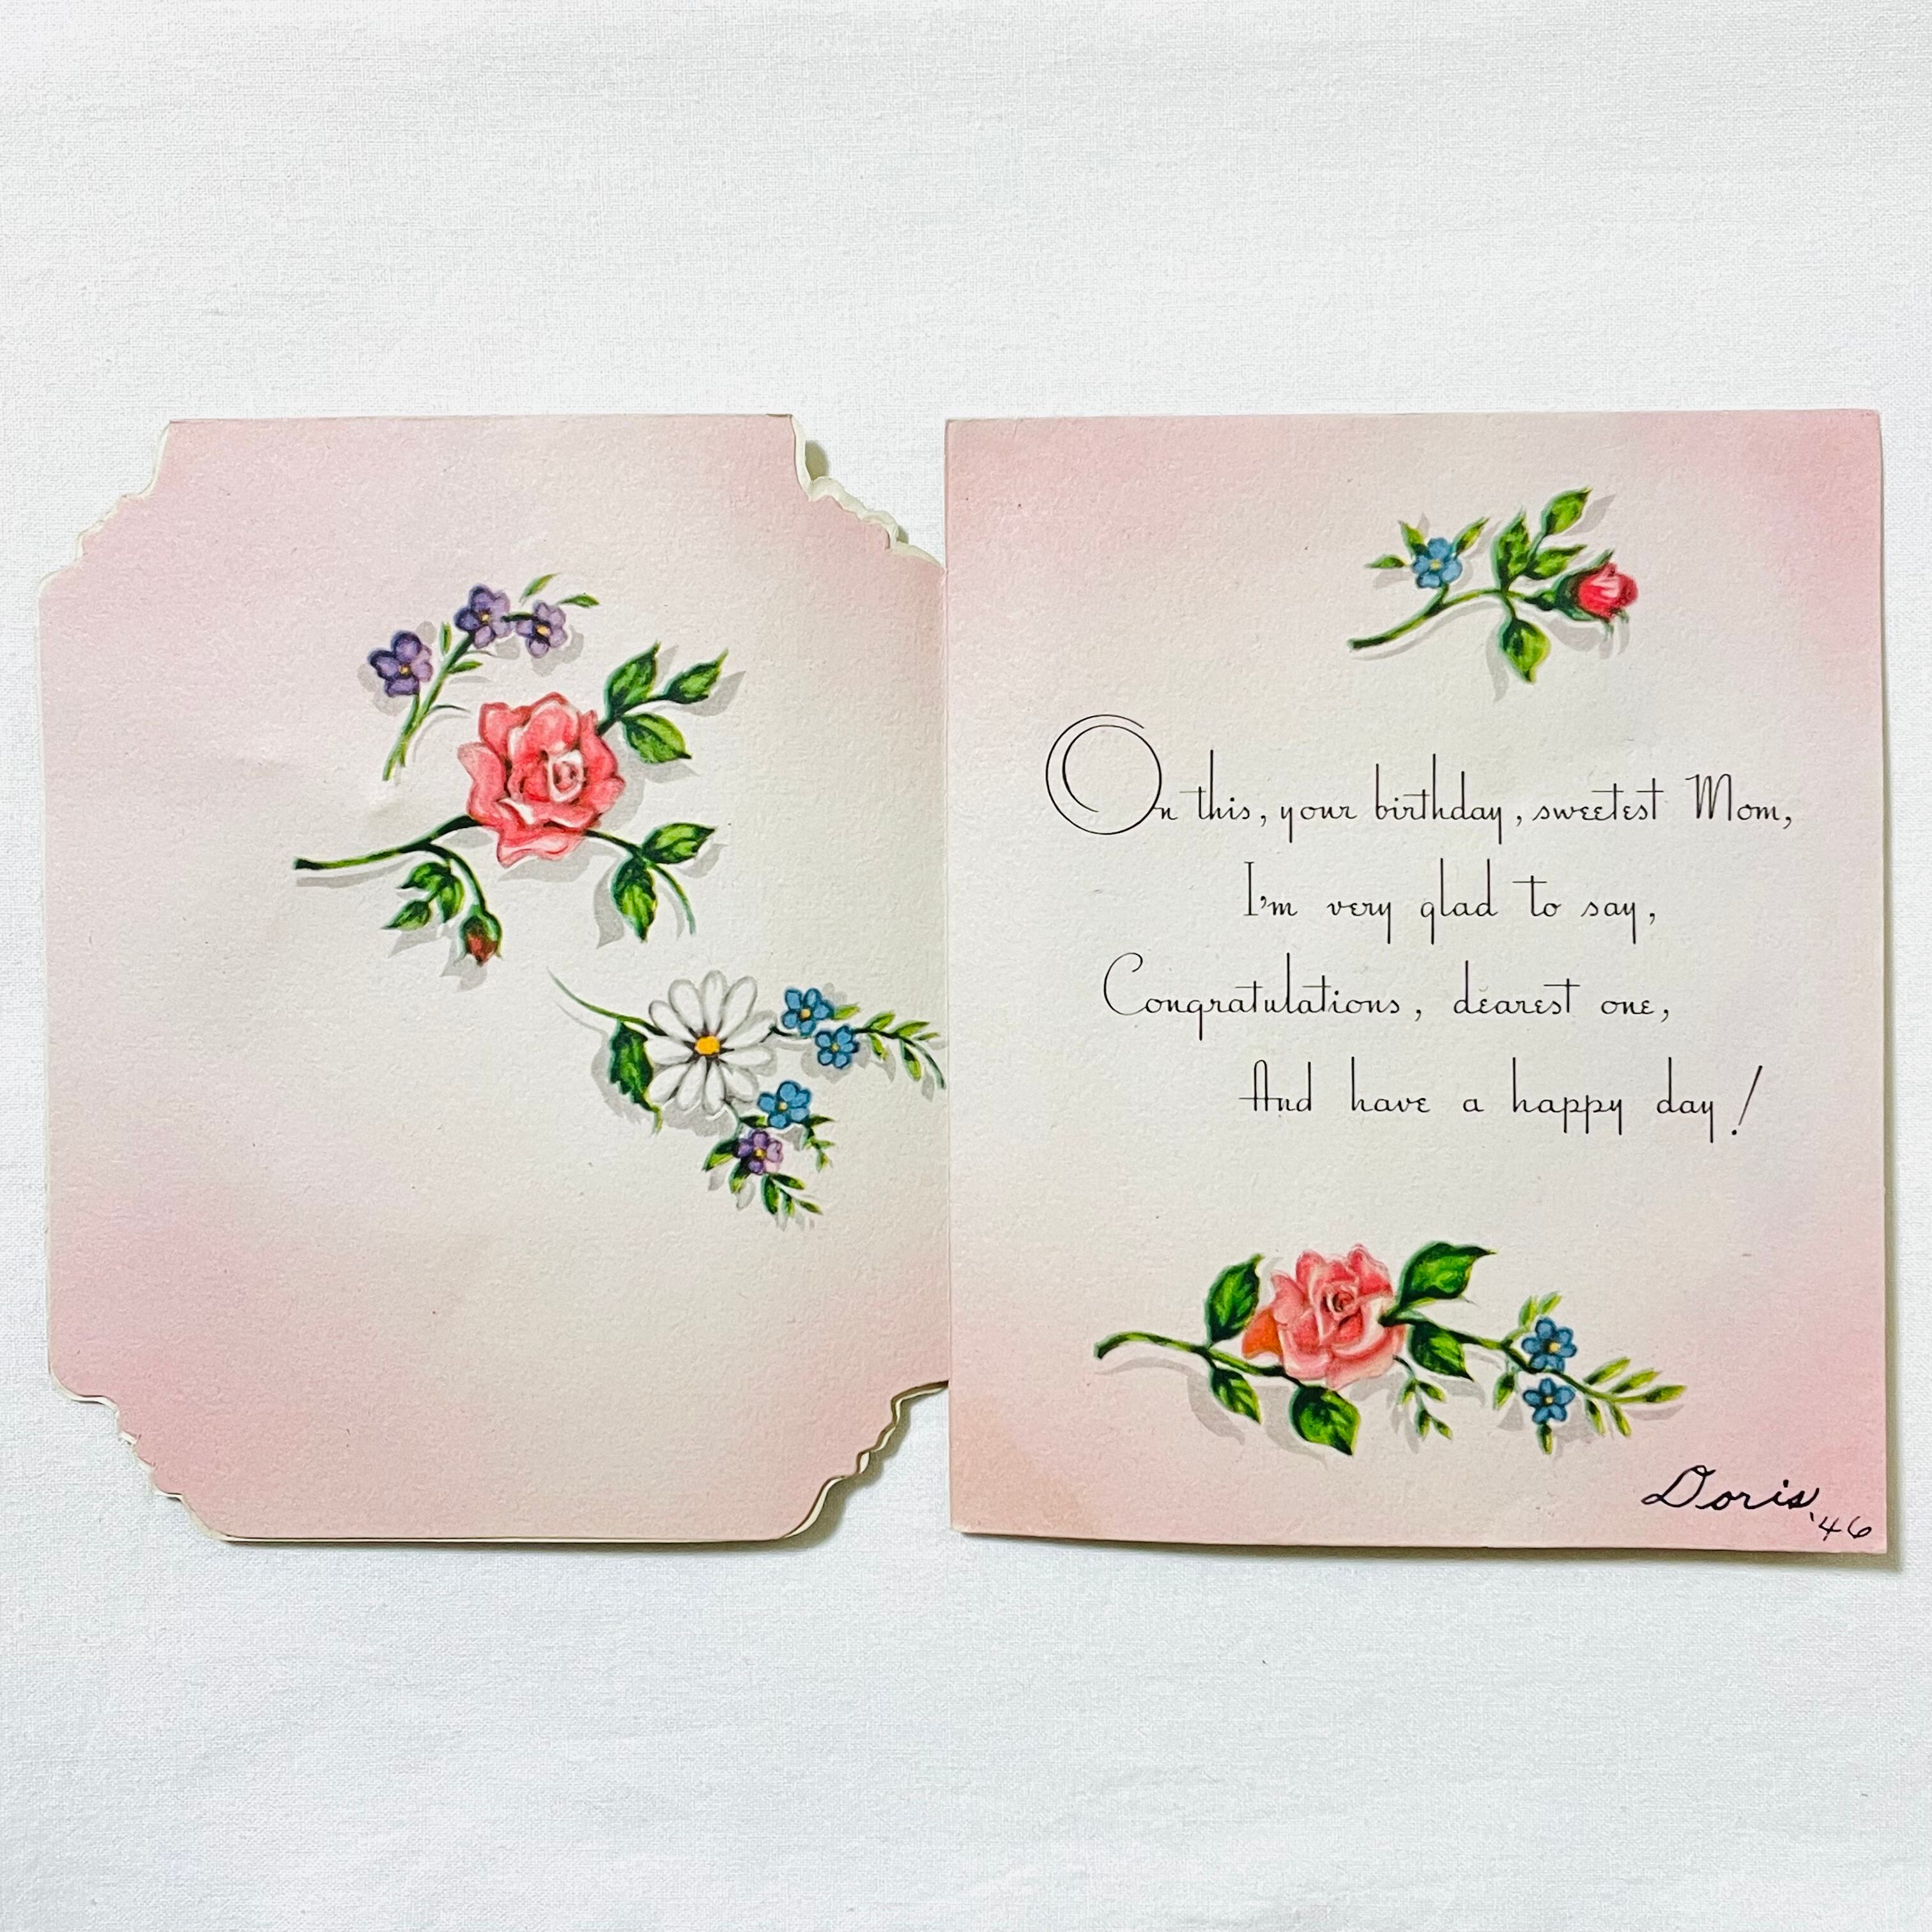 On this, your birthday, sweetest Mom,
I'm very glad to say,
Congratulations, dearest one,
And have a happy day!
Doris
'46